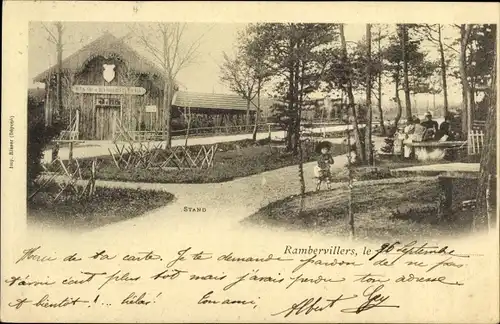 Imp. Risser (Déposé)
STAND
Rambervillers, le 26 Septembre
Merci de ta carte. Je te demande pardon de ne pas
t'avoir écrit plus tôt mais j'avais perdu ton adresse.
A bientôt!... hélas! Ton ami, Albert